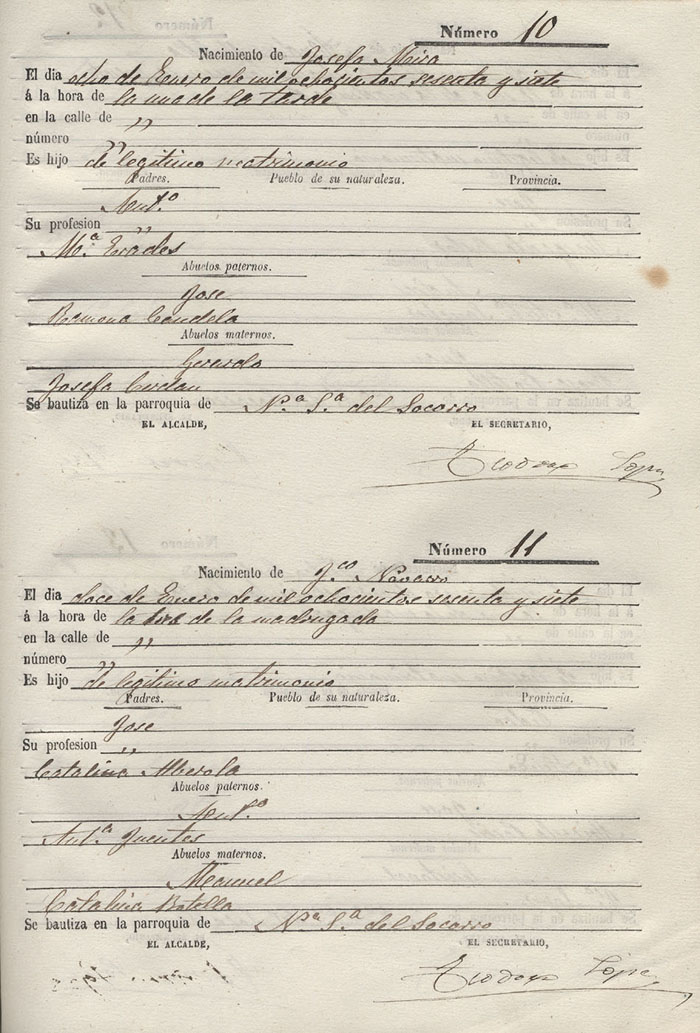 Número 10
Nacimiento de Josefa Mira
El dia ocho de Enero de mil ochocientos sesenta y siete
á la hora de la una de la tarde
en la calle de "
número "
Es hijo de legitimo matrimonio
Padres. Pueblo de su naturaleza. Provincia.
Ant.º
Su profesion "
M.ª Erades
Abuelos paternos.
Jose
Ramona Candela
Abuelos maternos.
Gerardo
Josefa
Se bautiza en la parroquia de N.ª S.ª del Socorro
EL ALCALDE, EL SECRETARIO,
Teodoro Lopez
Número 11
Nacimiento de F.co Navarro
El dia doce de Enero de mil ochocientos sesenta y siete
á la hora de la de la madrugada
en la calle de "
número "
Es hijo de legitimo matrimonio
Padres. Pueblo de su naturaleza. Provincia.
Jose
Su profesion "
Catalina Alberola
Abuelos paternos.
Ant.º
Ant.ª Fuentes
Abuelos maternos.
Manuel
Catalina Botella
Se bautiza en la parroquia de N.ª S.ª del Socorro
EL ALCALDE, EL SECRETARIO,
Teodoro Lopez